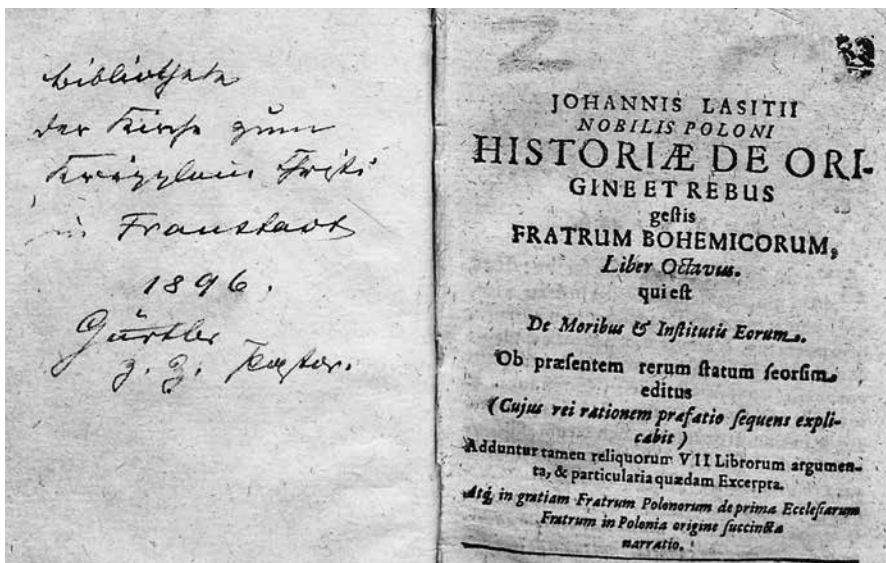 Bibliothek
der Kirche zum
Kripplein Christi
in Fraustadt
1896.
Gürtler
z. Z. Pastor.
JOHANNIS LASITII
NOBILIS POLONI
HISTORIÆ DE ORI-
GINE ET REBUS
gestis
FRATRUM BOHEMICORUM,
Liber Octavus.
qui est
De Moribus & Institutis Eorum.
Ob præsentem rerum statum seorsim
editus
(Cujus rei rationem præfatio sequens expli-
cabit)
Adduntur tamen reliquorum VII Librorum argumen-
ta, & particularia quædam Excerpta.
Atq; in gratiam Fratrum Polonorum de prima Ecclesiarum
Fratrum in Polonia origine succincta
narratio.